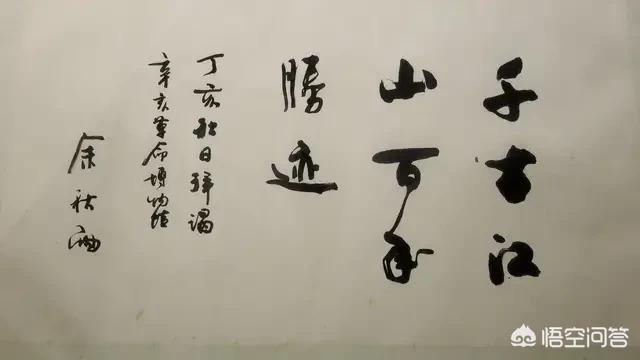 千古江
山百年
胜迹
丁亥秋日拜谒
辛亥革命博物馆
余秋雨
悟空问答